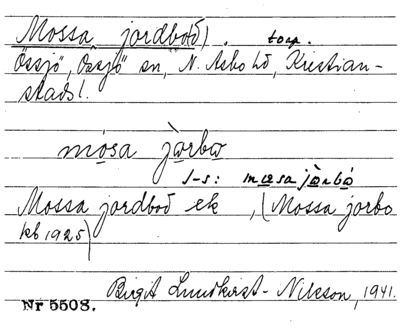 Mossa jordbod). torp.
Össjö, Össjö sn, N. Asbo hd, Kristian-
stads l.
mósa jὼrbω
s-s: mωsa jὼrbω
Mossa jordbod ek, (Mossa jorbo
kb 1925)
Birgit Lundkvist-Nilsson, 1941.
Nr 5508.